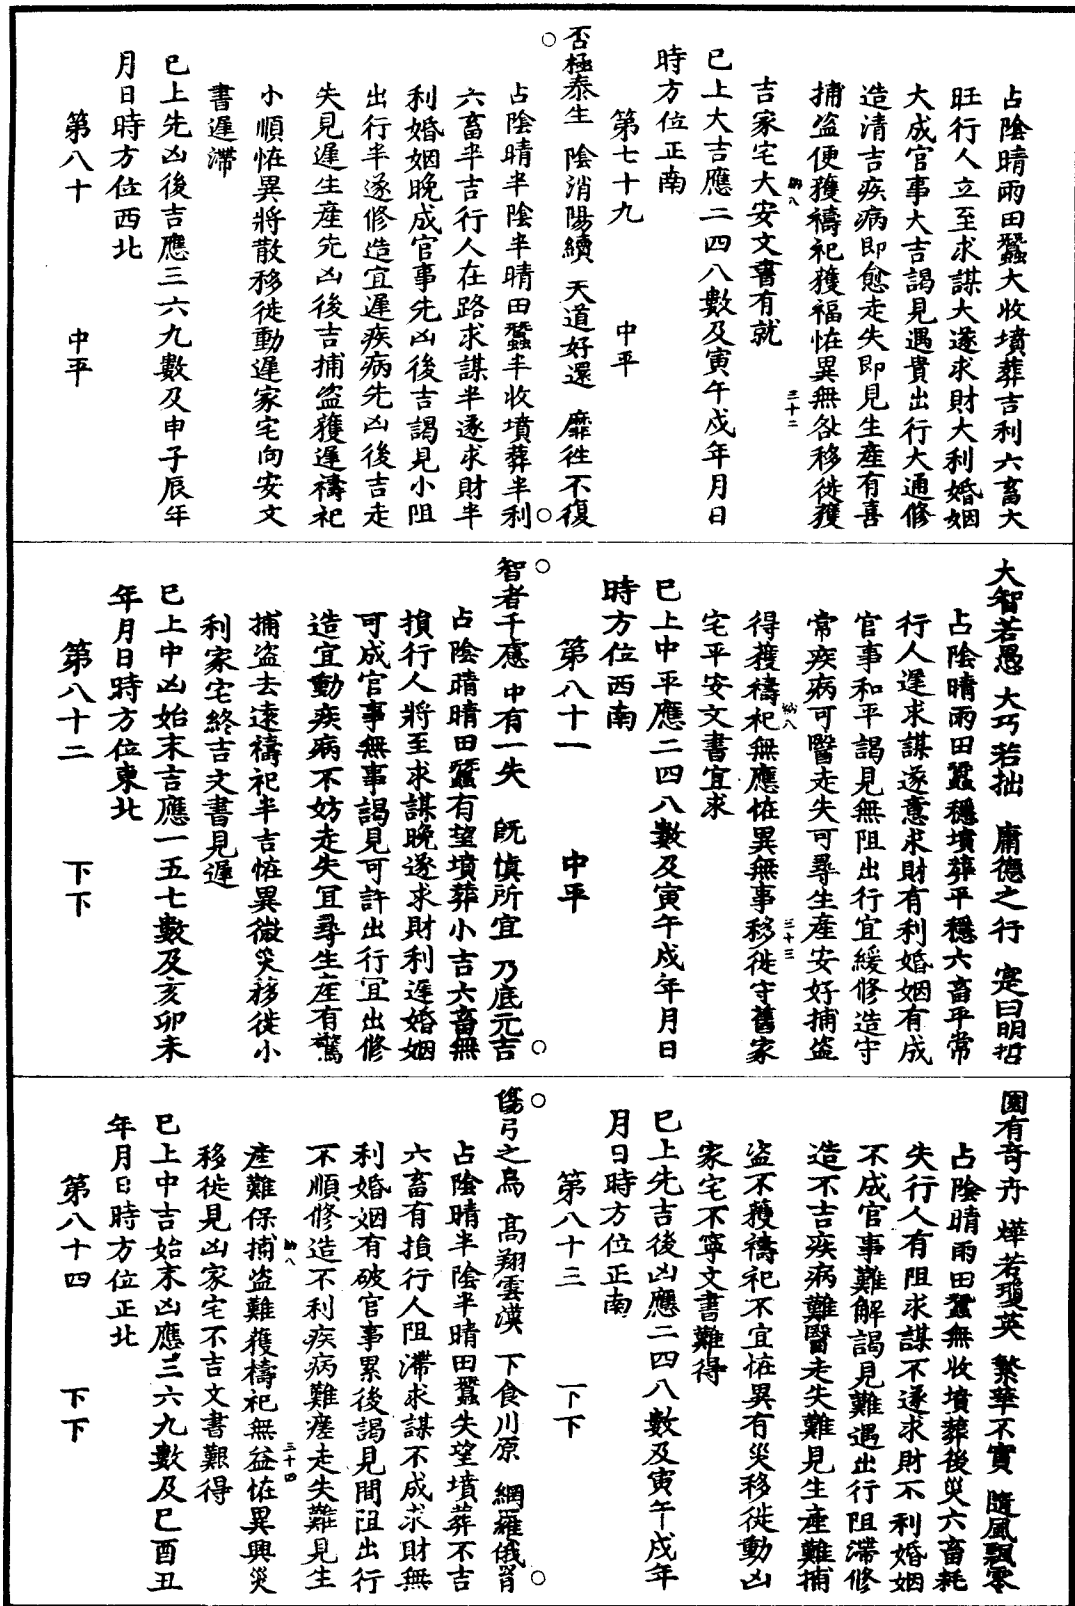 占陰晴雨田蠶大收墳葬吉利六畜大
旺行人立至求謀大遂求財大利婚姻
大成官事大吉謁見遇貴出行大通修
造清吉疾病即愈走失即見生產有喜
捕盗便獲禱祀獲福恠異無咎移徙獲
納八
三十二
吉家宅大安文書有就
已上大吉應二四八數及寅午戌年月日
時方位正南
第七十九 中平
否極泰生 陰消陽續 天道好還 靡往不復
占陰晴半陰半晴田蠶半收墳葬半利
六畜半吉行人在路求謀半遂求財半
利婚姻晚成官事先凶後吉謁見小阻
出行半遂修造宜遲疾病先凶後吉走
失見遲生產先凶後吉捕盗獲遲禱祀
小順恠異將散移徙動遲家宅向安文
書遲滯
已上先凶後吉應三六九數及申子辰年
月日時方位西北
第八十 中平
大智若愚 大巧若拙 庸德之行 寔曰明哲
占陰晴雨田蠶穩墳葬平穩六畜平常
行人遲求謀遂意求財有利婚姻有成
官事和平謁見無阻出行宜緩修造守
常疾病可醫走失可尋生產安好捕盗
得獲禱祀無應恠異無事移徙守舊家
納八
三十三
宅平安文書宜求
已上中平應二四八數及寅午戌年月日
時方位西南
第八十一 中平
智者千慮 中有一失 既慎所宜 乃底元吉
占陰晴晴田蠶有望墳葬小吉六畜無
損行人將至求謀晚遂求財利遲婚姻
可成官事無事謁見可許出行宜出修
造宜動疾病不妨走失宜尋生產有驚
捕盗去遠禱祀半吉恠異微災移徙小
利家宅終吉文書見遲
已上中凶始末吉應一五七數及亥卯未
年月日時方位東北
第八十二 下下
園有奇卉 燁若瓊英 繁華不實 隨風飄零
占陰晴雨田蠶無收墳葬後災六畜耗
失行人有阻求謀不遂求財不利婚姻
不成官事難解謁見難遇出行阻滯修
造不吉疾病難醫走失難見生產難捕
盗不獲禱祀不宜恠異有災移徙動凶
家宅不寧文書難得
已上先吉後凶應二四八數及寅午戌年
月日時方位正南
第八十三 下下
傷弓之鳥 高翔雲漢 下食川原 網羅俄罥
占陰晴半陰半晴田蠶失望墳葬不吉
六畜有損行人阻滯求謀不成求財無
利婚姻有破官事累後謁見間阻出行
不順修造不利疾病難瘥走失難見生
產難保捕盗難獲禱祀無益恠異興災
納八
三十四
移徙見凶家宅不吉文書艱得
已上中吉始末凶應三六九數及巳酉丑
年月日時方位正北
第八十四 下下